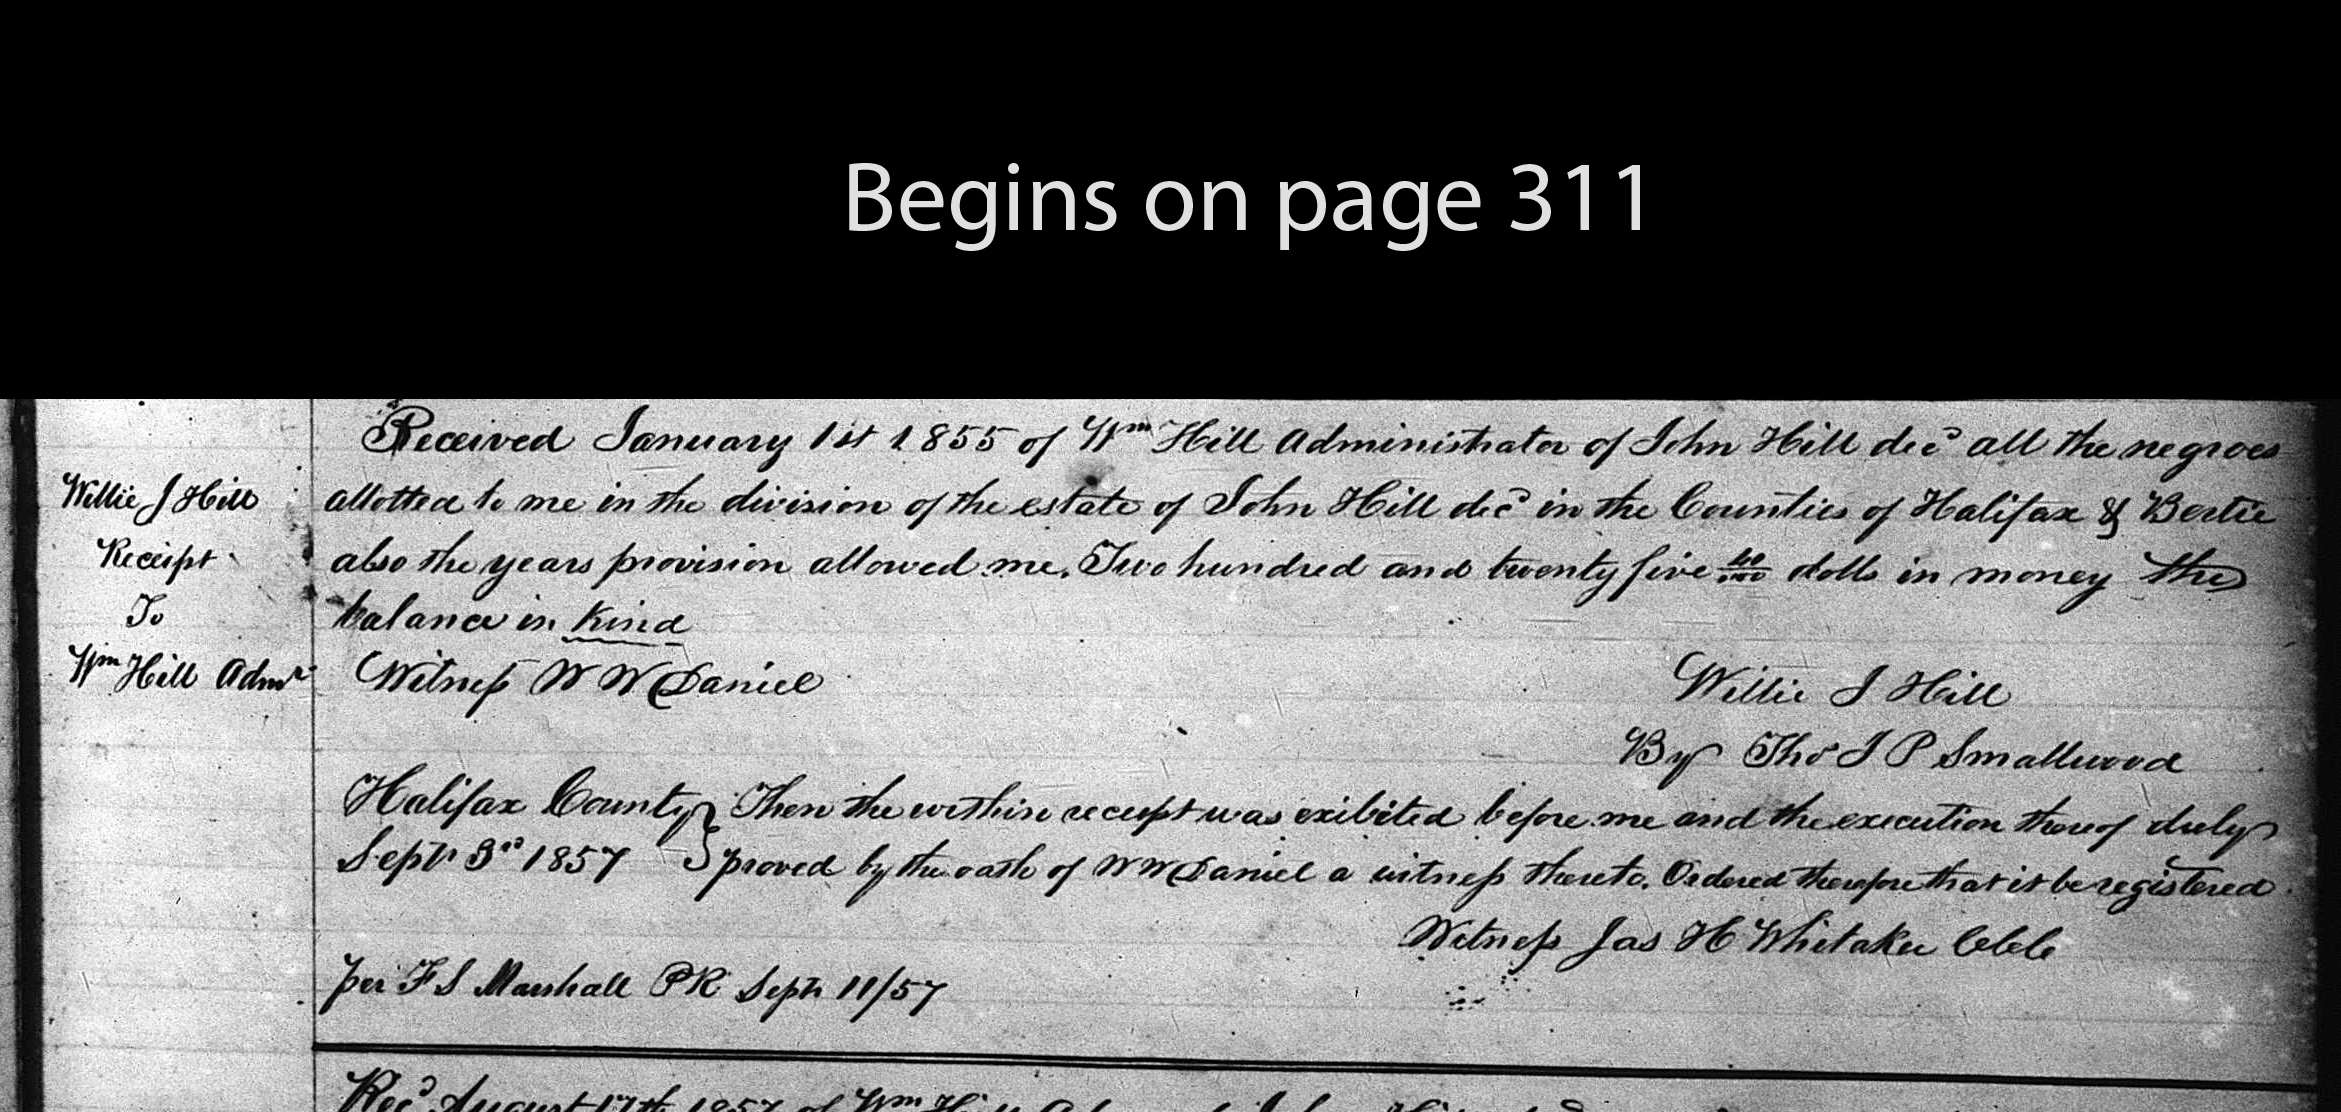 Begins on page 311
Received January 1st 1855 of Wm Hill Administrator of John Hill decd all the negroes
Willie J Hill
allotted to me in the division of the estate of John Hill decd in the Counties of Halifax & Bertie
Receipt
also the years provision allowed me, Two hundred and twenty five 40/100 dolls in money the
To
balance in Kind
Wm Hill Admr
Witness W W Daniel
Willie J Hill
By Thos J P Smallwood
Halifax County } Then the within receipt was exibited before me and the execution thereof duly
Septr 3rd 1857 } proved by the oath of W W Daniel a witness thereto. Ordered therefore that it be registered
Witness Jas H Whitaker
per F S Marshall P R Septr 11/57
Recd August 17th 1857 of Wm Hill